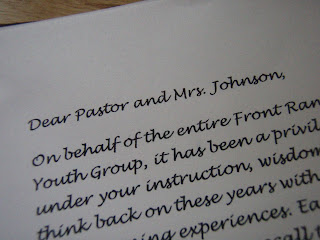 Dear Pastor and Mrs. Johnson,
On behalf of the entire Front
Youth Group, it has been a
under your instruction,
think back on these years with
experiences.